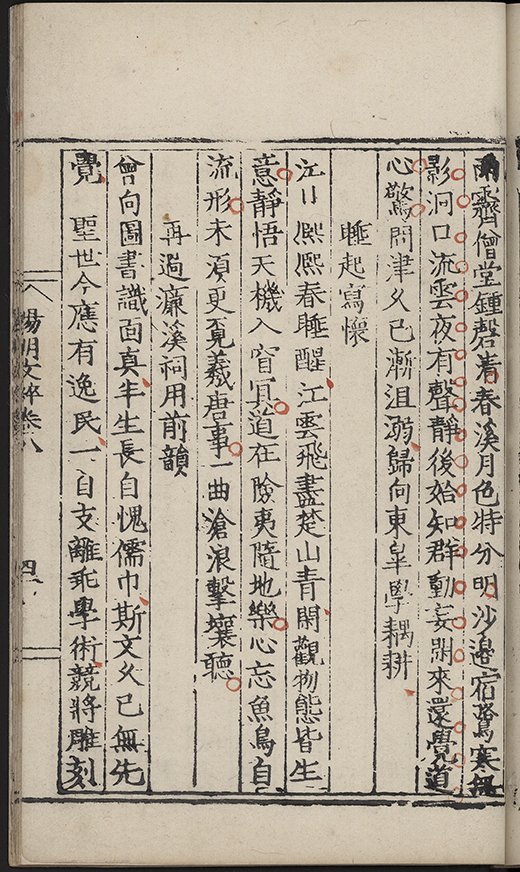 雨霽僧堂鍾磬清春溪月色特分明沙邊宿鷺寒無
影洞口流雲夜有聲靜後始知群動妄閒來還覺道
心驚問津久已漸沮溺歸向東皐學耦耕
睡起寫懷
江日熙熙春睡醒江雲飛盡楚山青閑觀物態皆生
意靜悟天機入窅冥道在險夷隨地樂心忘魚鳥自
流形未須更覓羲唐事一曲滄浪擊壤聽
再過濂溪祠用前韻
曾向圖書識面真半生長自愧儒巾斯文久已無先
覺 聖世今應有逸民一自支離乖學術競將雕刻
陽明文粹卷八
四